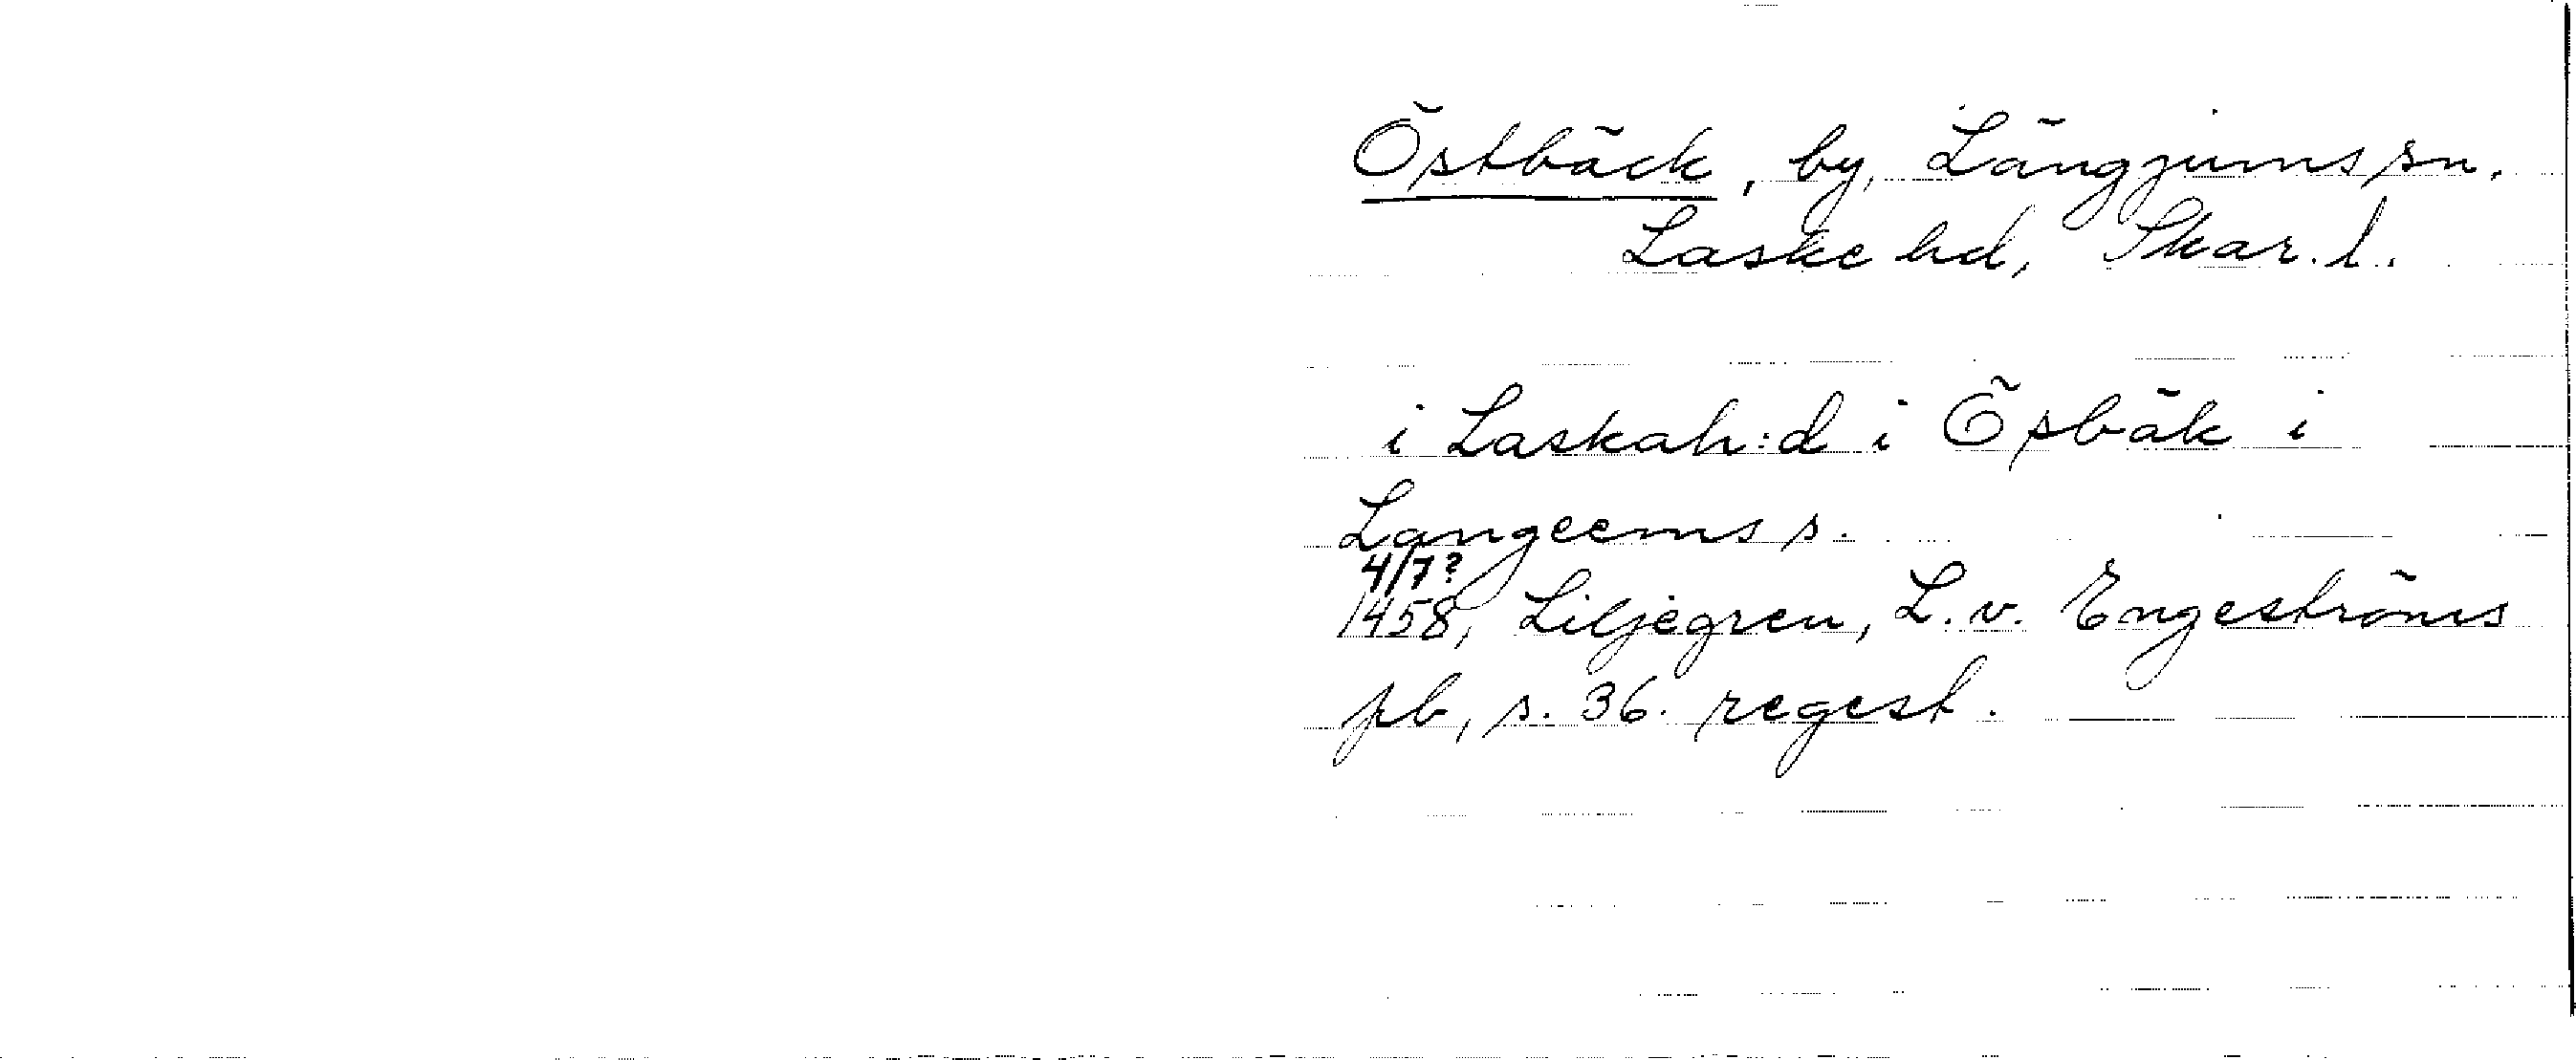 Östbäck, by, Längjums sn,
Laske hd, Skar. l.
i Laskah:d i Ösbäk i
Langeems s.
4/7?
1458, Liljegren, L. v. Engeströms
pb, s. 36. regest.